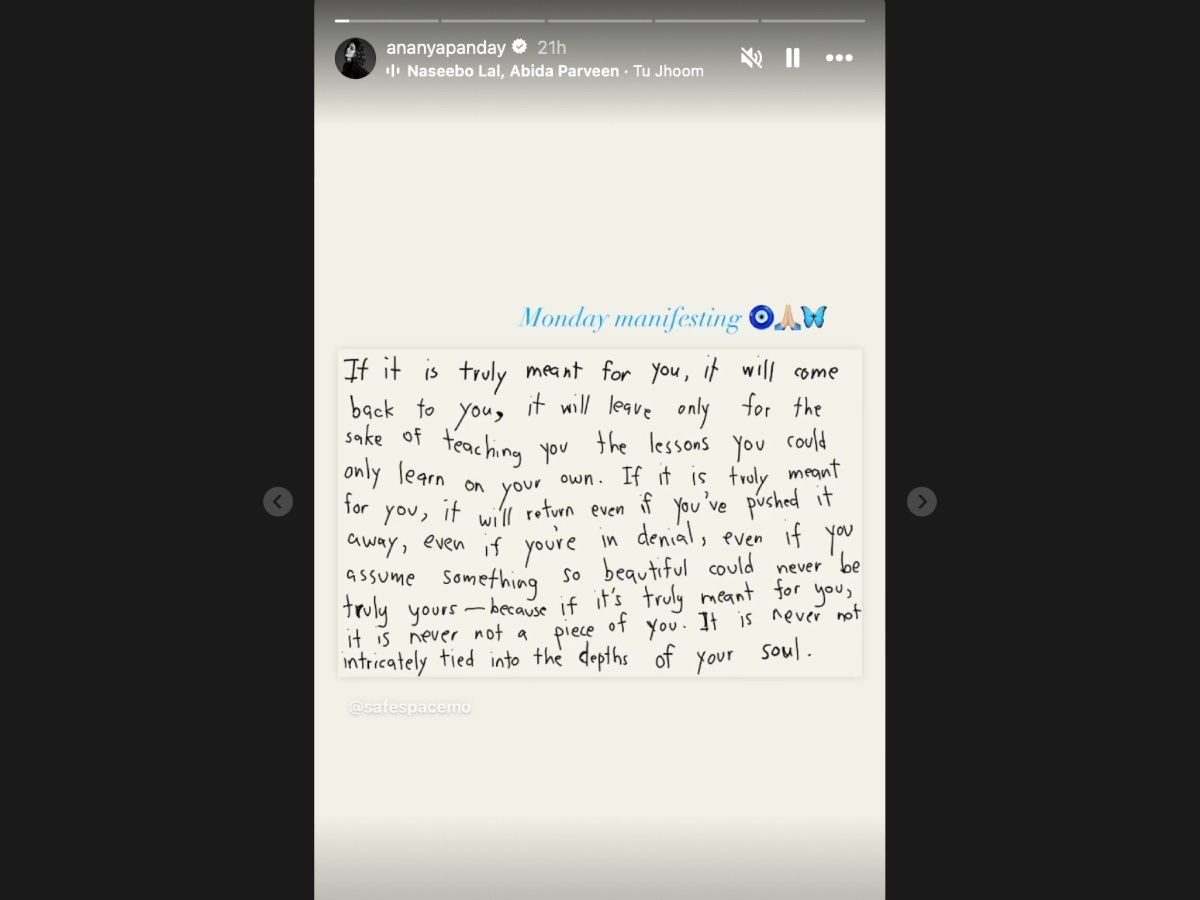 ananyapanday 21h
Naseebo Lal, Abida Parveen · Tu Jhoom
Monday manifesting 🧿🙏🏼🦋
If it is truly meant for you, it will come
back to you, it will leave only for the
sake of teaching you the lessons you could
only learn on your own. If it is truly meant
for you, it will return even if you've pushed it
away, even if you're in denial, even if you
assume something so beautiful could never be
truly yours — because if it's truly meant for you,
it is never not a piece of you. It is never not
intricately tied into the depths of your soul.
@safespacemo